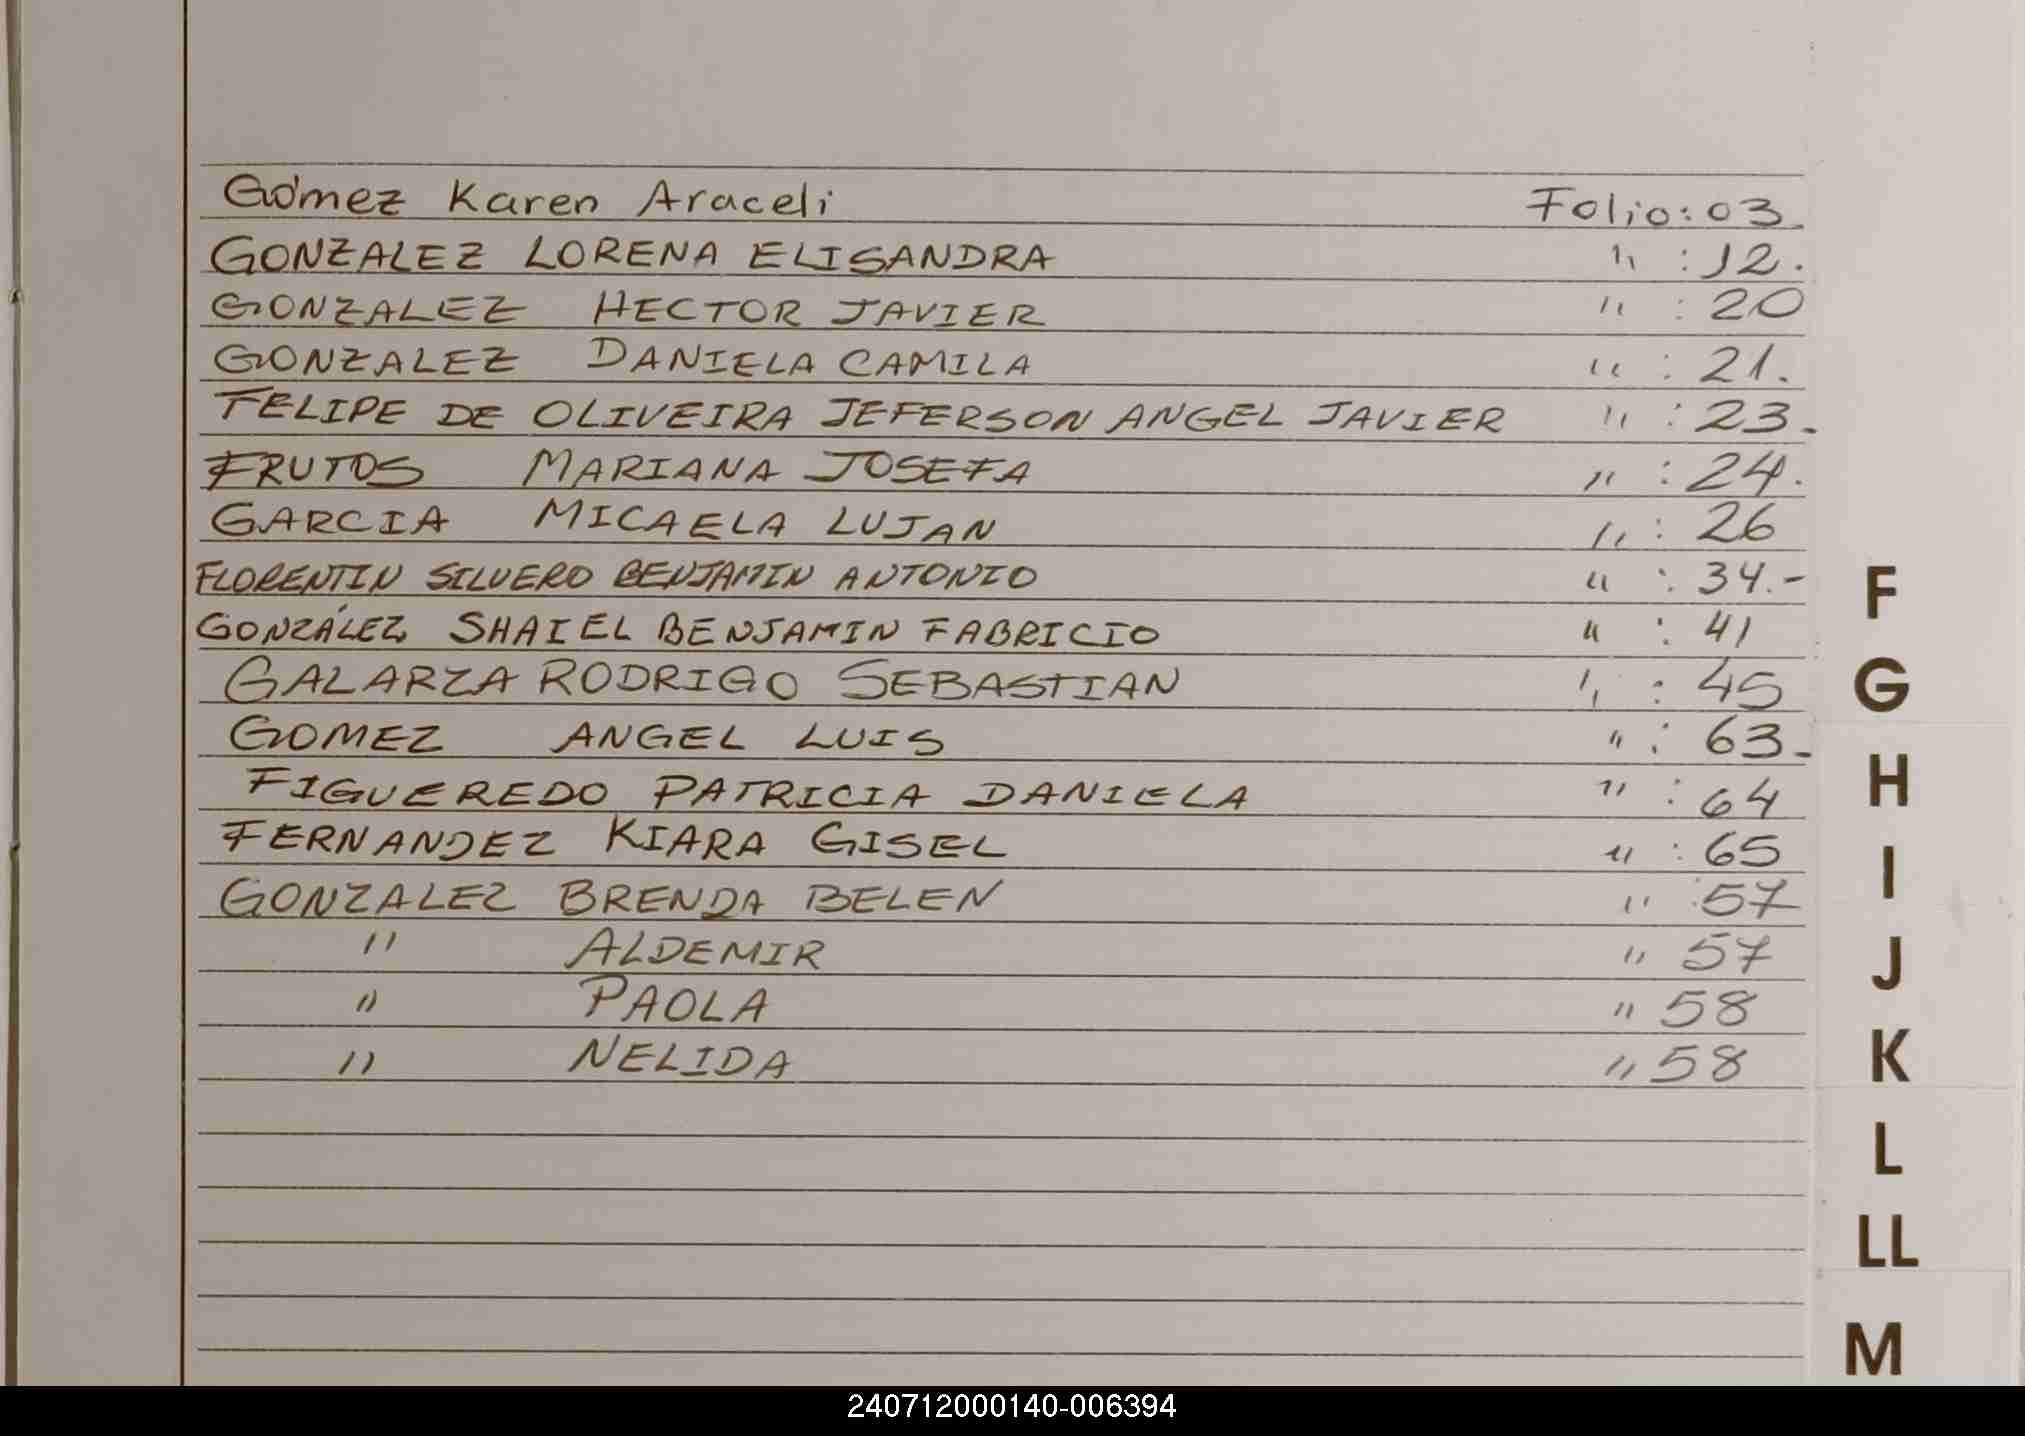 Gómez Karen Araceli Folio: 03.
GONZALEZ LORENA ELISANDRA " : 12.
GONZALEZ HECTOR JAVIER " : 20
GONZALEZ DANIELA CAMILA " : 21.
FELIPE DE OLIVEIRA JEFERSON ANGEL JAVIER " : 23.
FRUTOS MARIANA JOSEFA " : 24.
GARCIA MICAELA LUJAN " : 26
FLORENTIN SILVERO BENJAMIN ANTONIO " : 34.-
GONZÁLEZ SHAIEL BENJAMIN FABRICIO " : 41
GALARZA RODRIGO SEBASTIAN " : 45
GOMEZ ANGEL LUIS " : 63.
FIGUEREDO PATRICIA DANIELA " : 64
FERNANDEZ KIARA GISEL " : 65
GONZALEZ BRENDA BELEN " : 57
" ALDEMIR " 57
" PAOLA " 58
" NELIDA " 58
F
G
H
I
J
K
L
LL
M
240712000140-006394